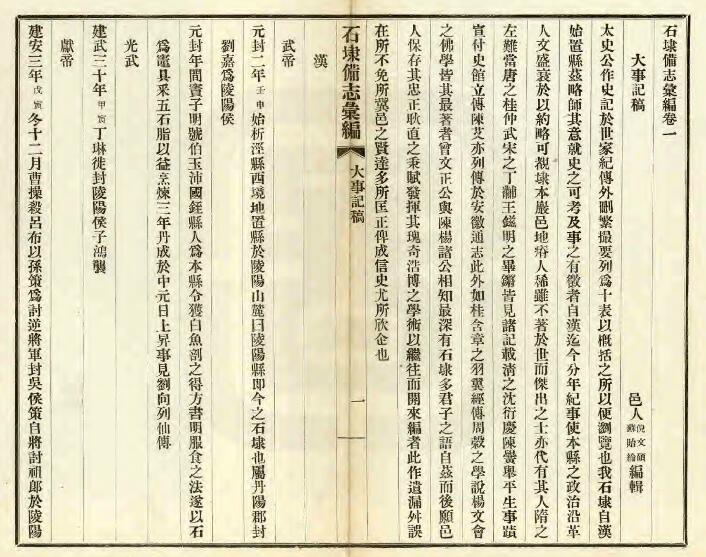 石埭備志彙編卷一
大事記稿
邑人倪文碩蘇貽綸編輯
太史公作史記於世家紀傳外刪繁撮要列爲十表以概括之所以便瀏覽也我石埭自漢
始置縣茲略師其意就史之可考及事之有徵者自漢迄今分年紀事使本縣之政治沿革
人文盛衰於以約略可覩埭本嚴邑地瘠人稀雖不著於世而傑出之士亦代有其人隋之
左難當唐之桂仲武宋之丁黼王鎡明之畢鏘皆見諸記載清之沈衍慶陳黌舉平生事蹟
宣付史館立傳陳艾亦列傳於安徽通志此外如桂含章之羽翼經傳周㲄之學說楊文會
之佛學皆其最著者曾文正公與陳楊諸公相知最深有石埭多君子之語自茲而後願邑
人保存其忠正耿直之秉賦發揮其瑰奇浩博之學術以繼往而開來編者此作遺漏舛誤
在所不免所冀邑之賢達多所匡正俾成信史尤所欣企也
石埭備志彙編
大事記稿
一
漢
武帝
元封二年壬申始析涇縣西境地置縣於陵陽山麓曰陵陽縣即今之石埭也屬丹陽郡封
劉嘉爲陵陽侯
元封年間竇子明號伯玉沛國銍縣人爲本縣令獲白魚剖之得方書明服食之法遂以石
爲竈具釆五石脂以益烹煉三年丹成於中元日上昇事見劉向列仙傳
光武
建武三十年甲寅丁綝徙封陵陽侯子鴻襲
獻帝
建安三年戊寅冬十二月曹操殺呂布以孫策爲討逆將軍封吳侯策自將討祖郎於陵陽